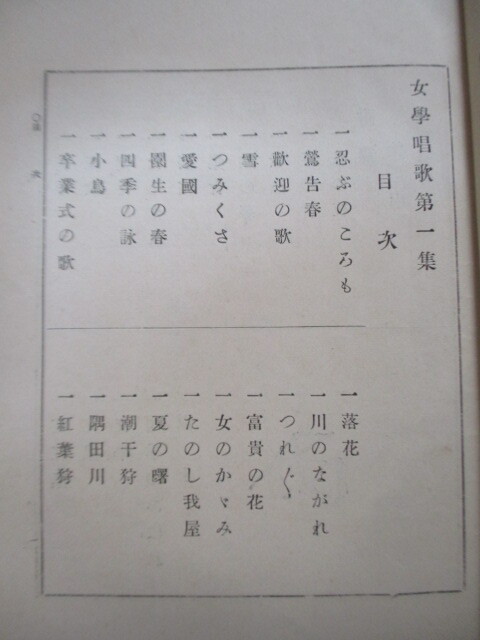 女學唱歌第一集
目次
一忍ぶのころも
一鶯告春
一歡迎の歌
一雪
一つみくさ
一愛國
一園生の春
一四季の詠
一小鳥
一卒業式の歌
一落花
一川のながれ
一つれ〴〵
一富貴の花
一女のかゞみ
一たのし我屋
一夏の曙
一潮干狩
一隅田川
一紅葉狩